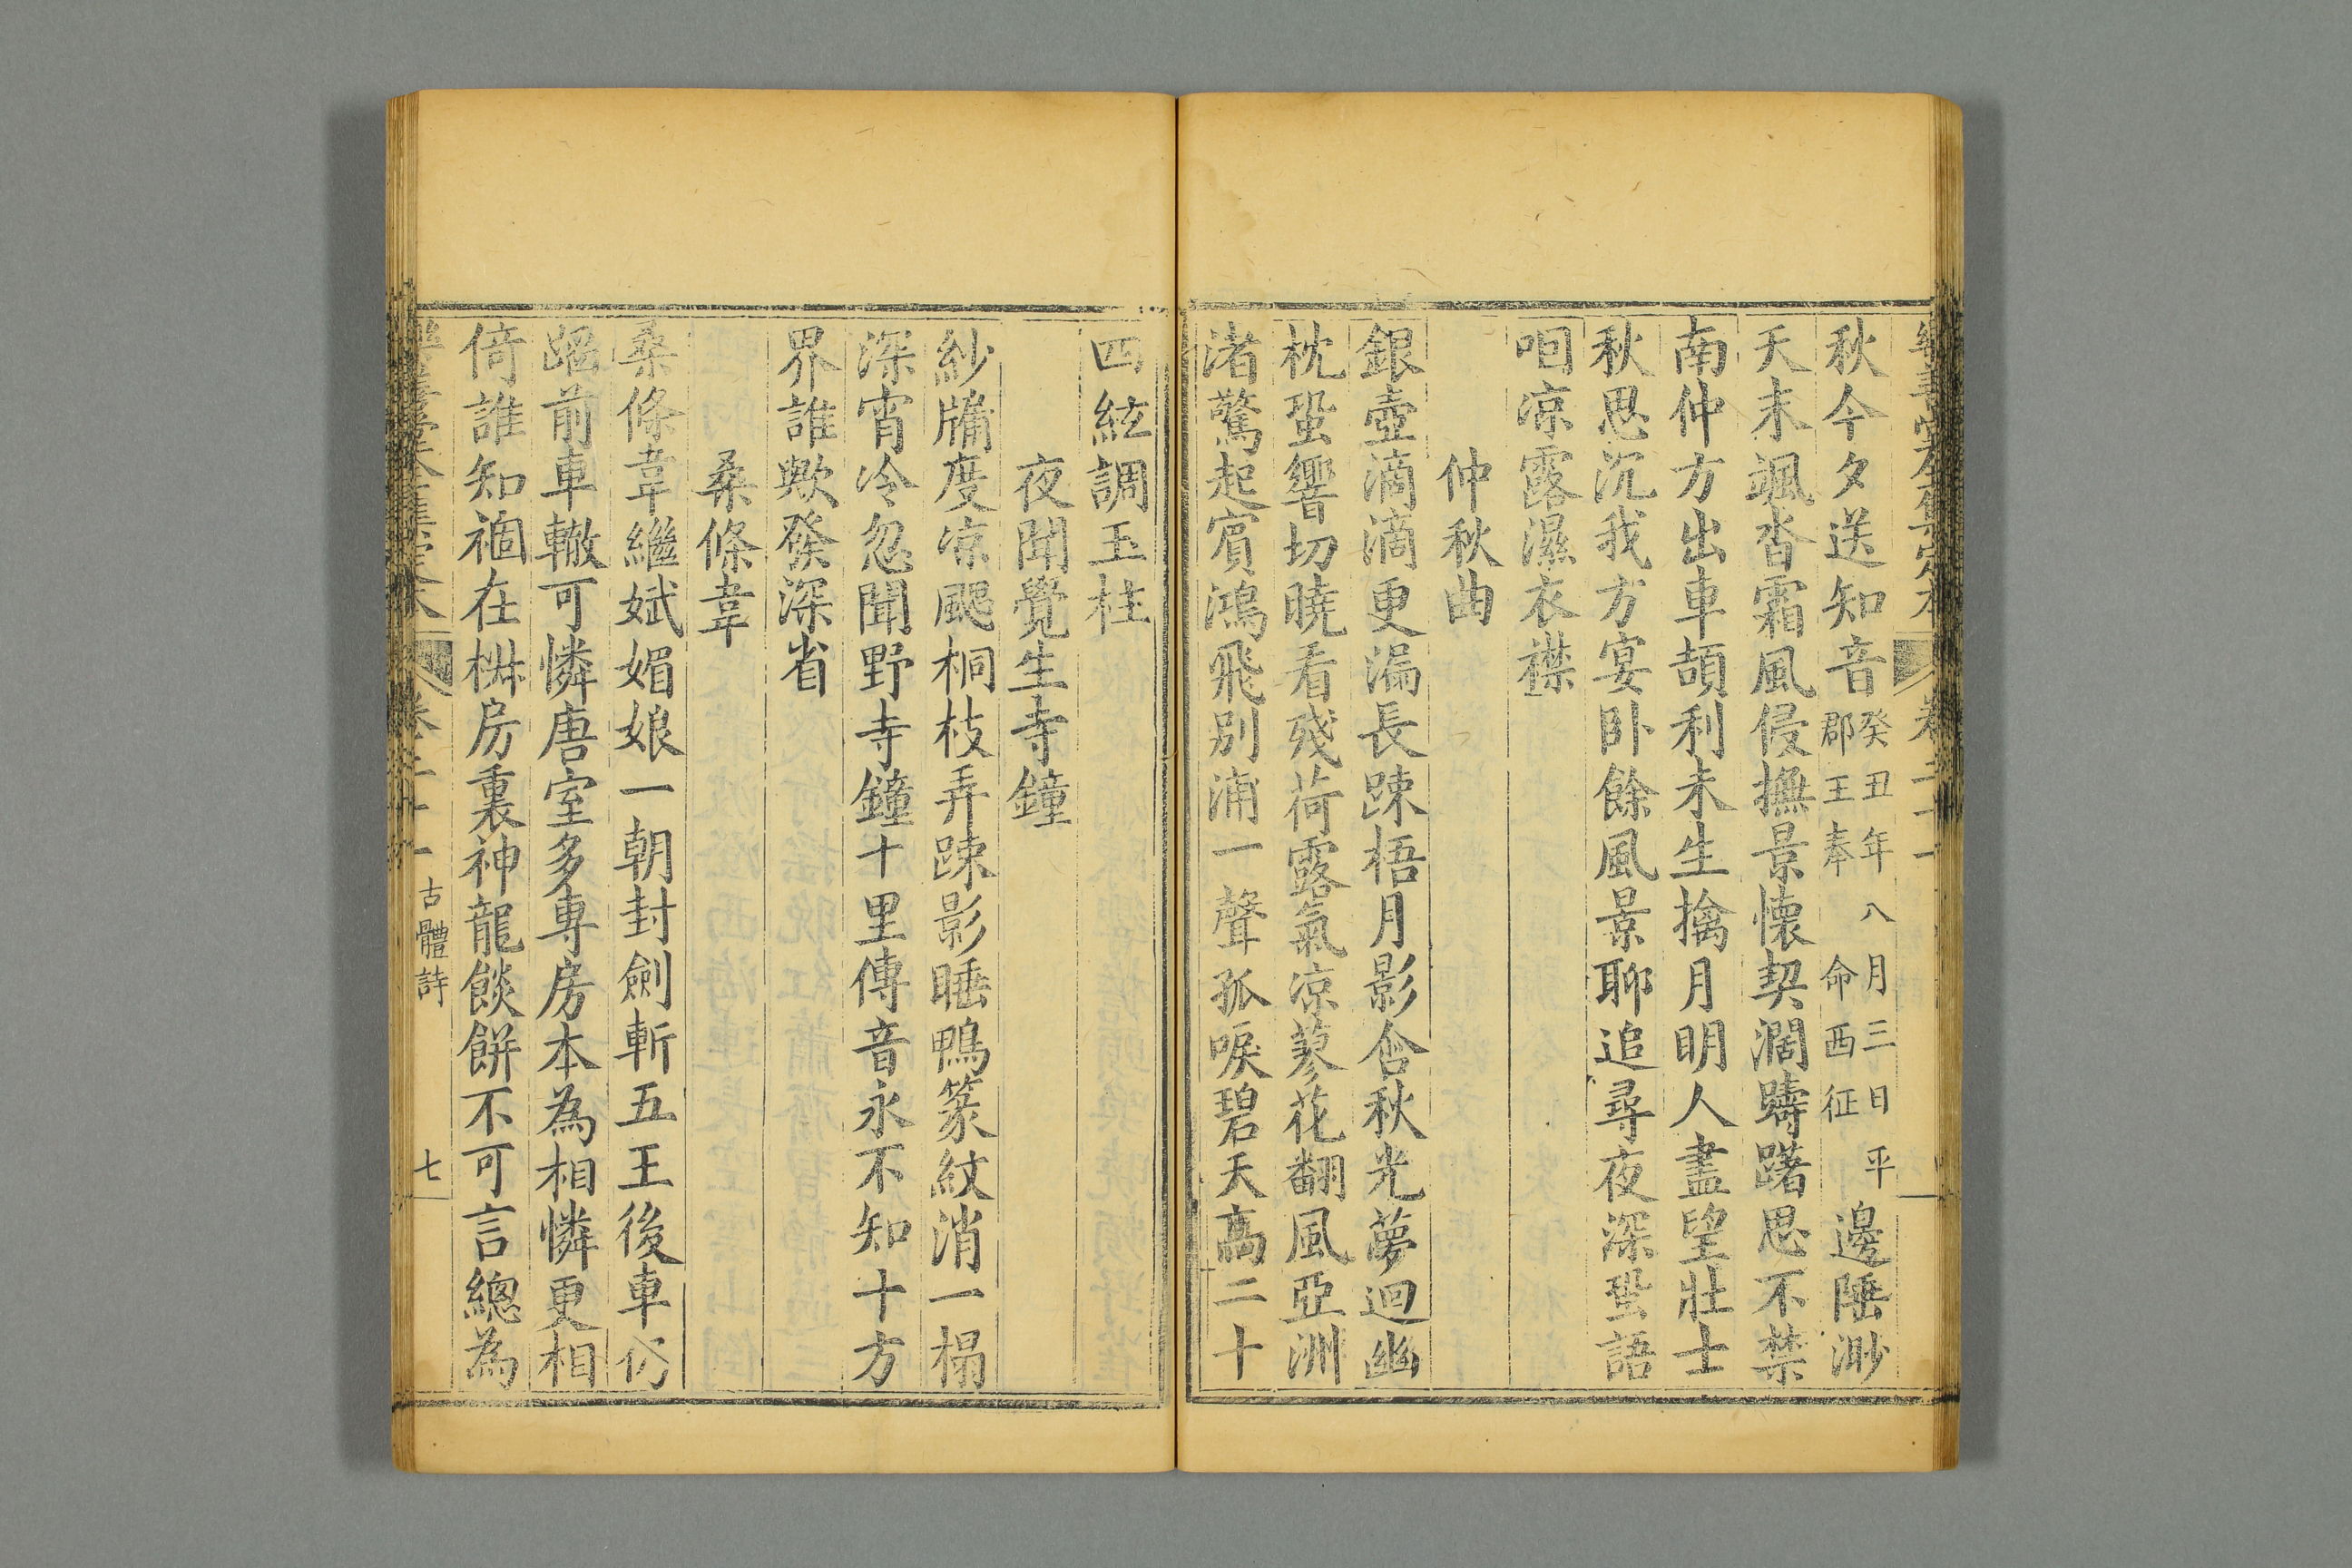 秋今夕送知音癸丑年八月三日平郡王奉命西征邊陲渺
天末颯沓霜風侵撫景懷契濶躊躇思不禁
南仲方出車頡利未生擒月明人盡望壯士
秋思沉我方宴卧餘風景聊追尋夜深蛩語
咽凉露濕衣襟
仲秋曲
銀壺滴滴更漏長踈梧月影含秋光夢迴幽
枕蛩響切曉看殘荷露氣凉蓼花翻風亞洲
渚驚起賓鴻飛別浦一聲孤唳碧天高二十
四絃調玉柱
夜聞覺生寺鐘
紗牖度凉颸桐枝弄踈影睡鴨篆紋消一榻
深宵冷忽聞野寺鐘十里傳音永不知十方
界誰歟發深省
桑條韋
桑條韋繼斌媚娘一朝封劍斬五王後車仍
蹈前車轍可憐唐室多專房本為相憐更相
倚誰知禍在椒房裏神龍餤餅不可言總為
樂善堂全集定本 卷二十一 古體詩 七